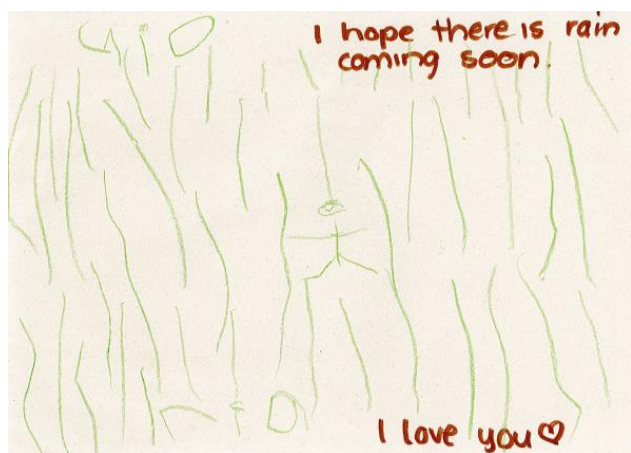 Gio
I hope there is rain
coming soon.
I love you♡